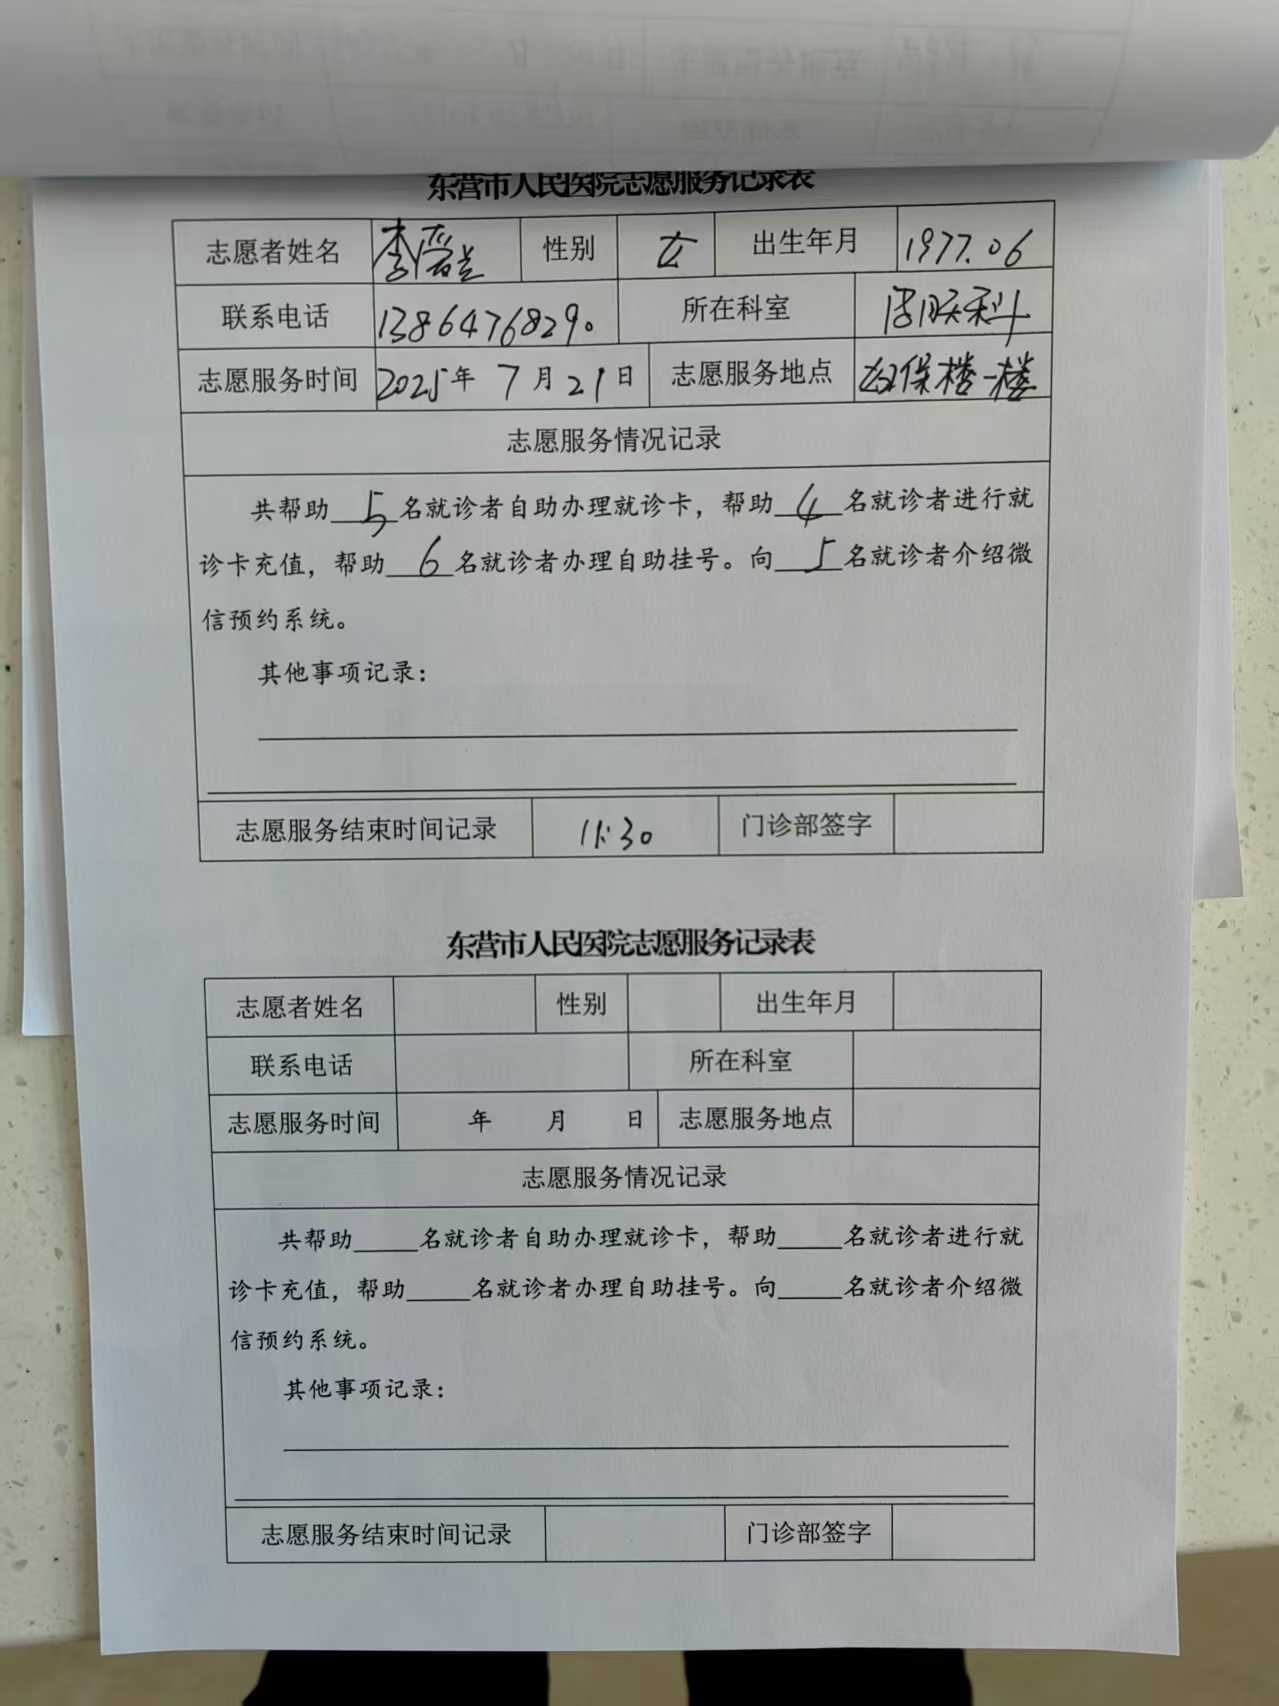 东营市人民医院志愿服务记录表
志愿者姓名 李 兰 性别 女 出生年月 1977.06
联系电话 13864768290 所在科室 科
志愿服务时间 2025年 7月21日 志愿服务地点 妇保楼一楼
志愿服务情况记录
共帮助 5 名就诊者自助办理就诊卡，帮助 4 名就诊者进行就
诊卡充值，帮助 6 名就诊者办理自助挂号。向 5 名就诊者介绍微
信预约系统。
其他事项记录：
志愿服务结束时间记录 11:30 门诊部签字
东营市人民医院志愿服务记录表
志愿者姓名 性别 出生年月
联系电话 所在科室
志愿服务时间 年 月 日 志愿服务地点
志愿服务情况记录
共帮助_____名就诊者自助办理就诊卡，帮助_____名就诊者进行就
诊卡充值，帮助_____名就诊者办理自助挂号。向_____名就诊者介绍微
信预约系统。
其他事项记录：
志愿服务结束时间记录 门诊部签字